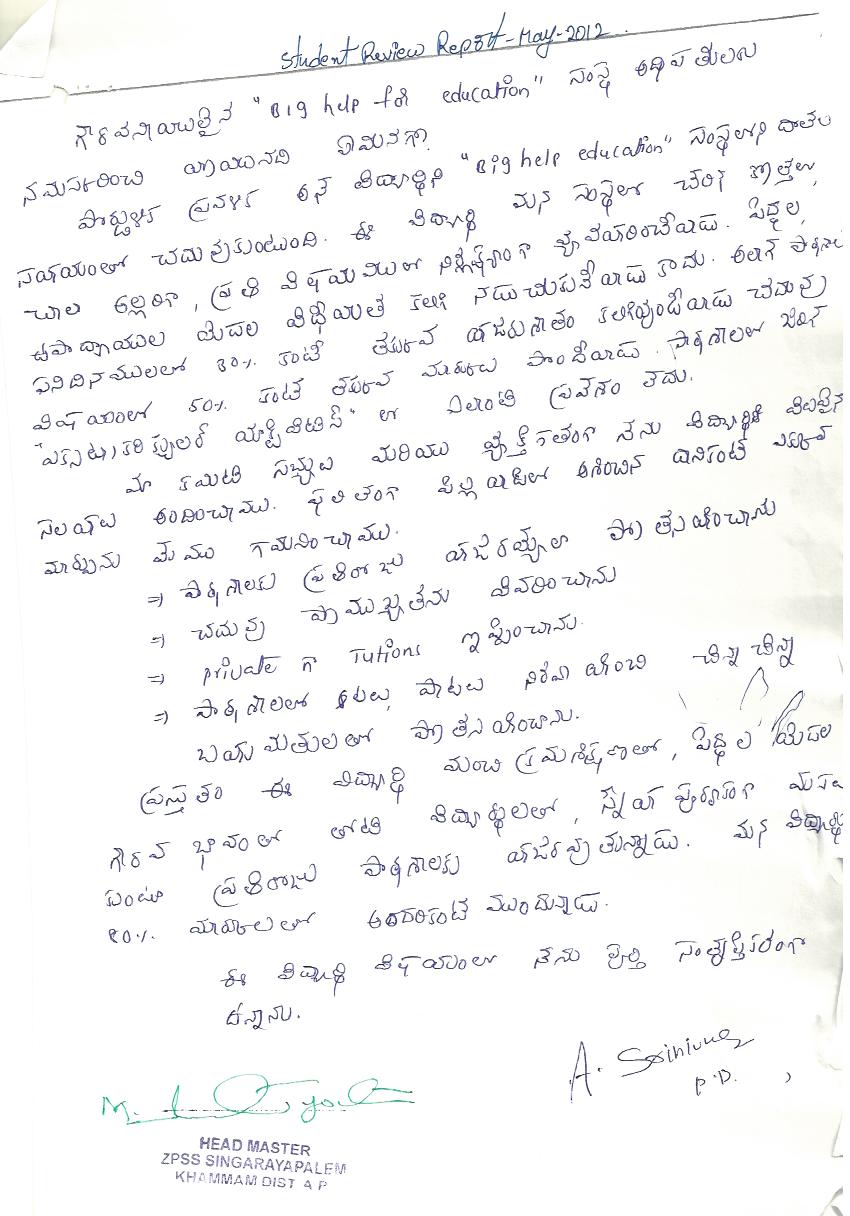 Student Review Report-May-2012
గౌరవనీయులైన "Big help for education" సంస్థ అధిపతులు
నమస్కరించి వ్రాయునది ఏమనగా,
ప్రవళిక అనే విద్యార్థిని "Big help education" సంస్థలోని దాతల
సహాయంతో చదువుకుంటుంది. ఈ విద్యార్థి మన సంస్థలో చేరిన కొత్తలో,
చాల అల్లరిగా, ప్రతి విషయములో నిర్లక్ష్యంగా వ్యవహరించేవాడు. పెద్దల,
ఉపాధ్యాయుల యెడల విధేయత కలిగి నడుచుకునేవాడు కాదు. అలాగే పాఠశాల
పనిదినములలో 80% కంటే తక్కువ హాజరుశాతం కలిగివుండేవాడు చదువు
విషయంలో 50% కంటే తక్కువ మార్కులు పొందేవాడు. పాఠశాలలో జరిగే
"ఎక్స్ట్రా కరిక్యులర్ యాక్టివిటిస్" లో ఎలాంటి ప్రవేశం లేదు.
మా కమిటి సభ్యులు మరియు వ్యక్తిగతంగా నేను విద్యార్థికి విలువైన
సలహాలు అందించాము. ఫలితంగా పిల్లవాడిలో ఆశించిన దానికంటే ఎక్కువ
మార్పును మేము గమనించాము.
⇒ పాఠశాలకు ప్రతిరోజు హాజరయ్యేలా ప్రోత్సహించాను
⇒ చదువు ప్రాముఖ్యతను వివరించాను
⇒ private గా Tutions ఇప్పించాను.
⇒ పాఠశాలలో ఆటలు, పాటలు నిర్వహించి చిన్న చిన్న
బహుమతులతో ప్రోత్సహించాను.
ప్రస్తుతం ఈ విద్యార్థి మంచి క్రమశిక్షణతో, పెద్దల యెడల
గౌరవ భావంతో తోటి విద్యార్థులతో, స్నేహపూర్వకంగా
ఉంటూ ప్రతిరోజు పాఠశాలకు హాజరవుతున్నాడు. మన విద్యార్థి
80% మార్కులతో అందరికంటే ముందున్నాడు.
ఈ విద్యార్థి విషయంలో నేను పూర్తి సంతృప్తికరంగా
ఉన్నాను.
A. Srinivas
P.D.
HEAD MASTER
ZPSS SINGARAYAPALEM
KHAMMAM DIST A P